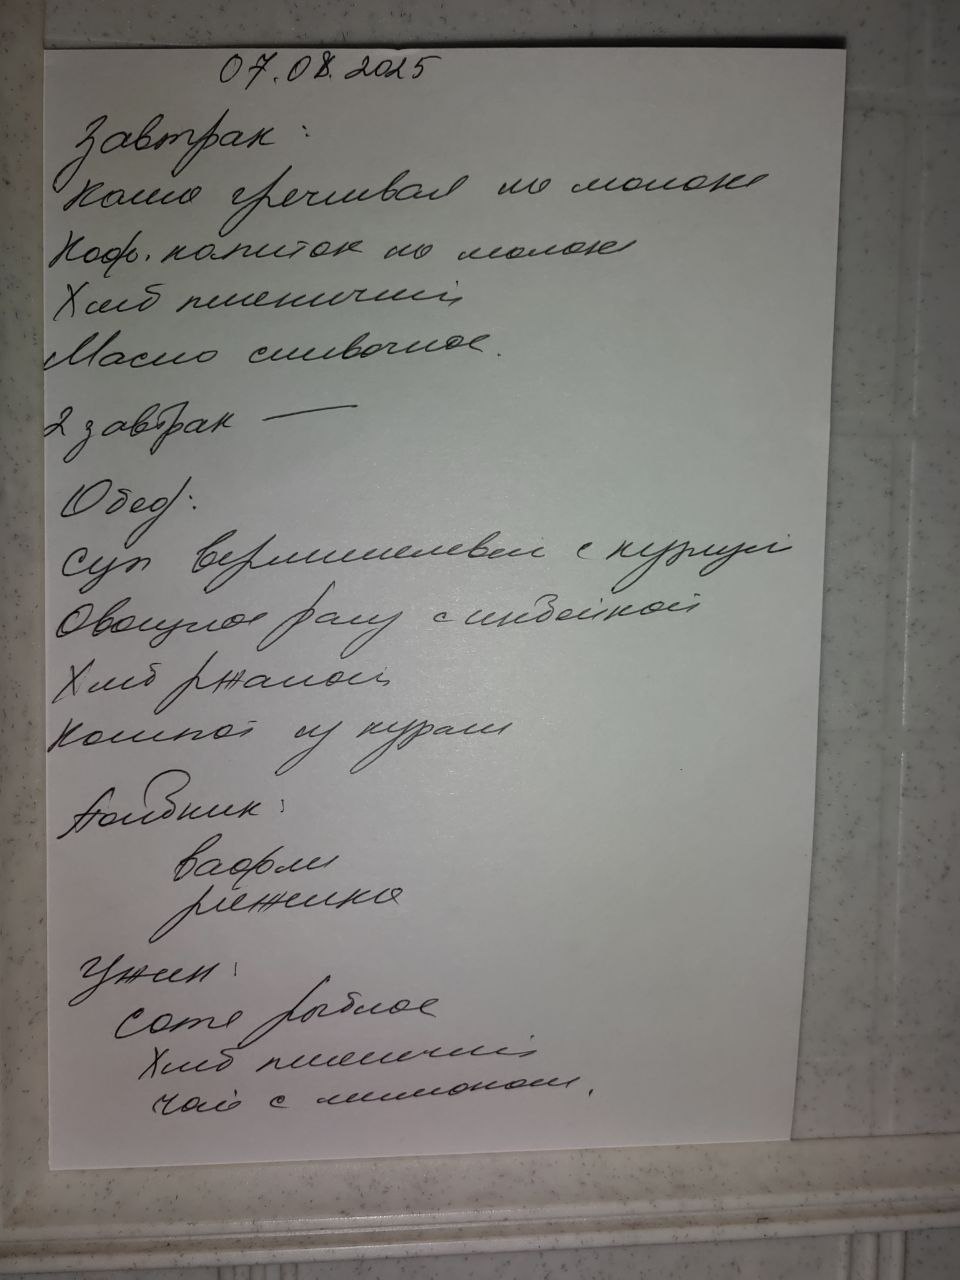 07.08.2025
Завтрак:
Каша гречневая на молоке
Коф. напиток на молоке
Хлеб пшеничный
Масло сливочное.
2 завтрак —
Обед:
Суп вермишелевый с курицей
Овощное рагу с индейкой
Хлеб ржаной
Компот из кураги
Полдник:
вафли
ряженка
Ужин:
Соте рыбное
Хлеб пшеничный
чай с лимоном.